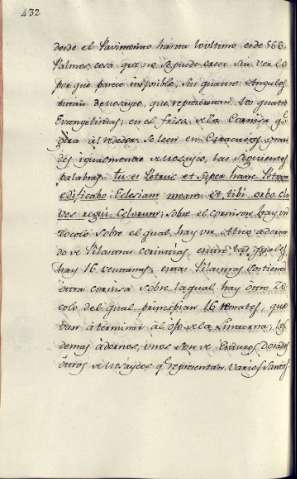 432
desde el Pavimento hasta lo ultimo es de 566
Palmos, cosa que no se puede creer sin ver lo
por que parece imposible, sus quatro Angulos
tienen de mosayco, que representan los quatro
Evangelistas; en el friso de la Cornisa qe
gira al rededor se leen en Caracteres gran
des igualmente de mosayco, las siguientes
palabras Tu es Petrus et super hanc Petram
edificabo Eclesiam meam et tibi dabo cla
ves regni Celorum; sobre el cornison hay un
zocolo sobre el qual hay un Atico adorna
do de Pilastras corintias, entre las quales
hay 16 ventanas, estas Pilastras sostienen
ōtra cornisa sobre la qual hay otro zo
colo del qual principian 16 que
van à terminar al ojo de la Linterna, los
demas adornos, unos son de Estucos dorados
ōtros de Mosaycos qe representan varios Santos